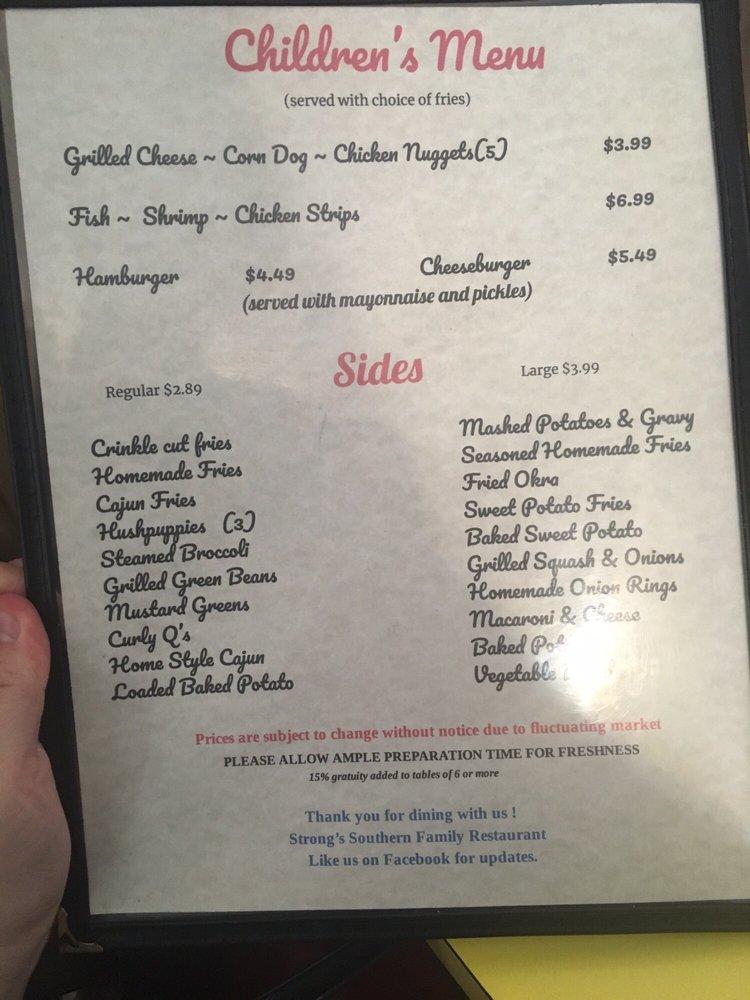 Children's Menu
(served with choice of fries)
Grilled Cheese ~ Corn Dog ~ Chicken Nuggets(5) $3.99
Fish ~ Shrimp ~ Chicken Strips $6.99
Hamburger $4.49 Cheeseburger $5.49
(served with mayonnaise and pickles)
Sides
Regular $2.89
Crinkle cut fries
Homemade Fries
Cajun Fries
Hushpuppies (3)
Steamed Broccoli
Grilled Green Beans
Mustard Greens
Curly Q's
Home Style Cajun
Loaded Baked Potato
Large $3.99
Mashed Potatoes & Gravy
Seasoned Homemade Fries
Fried Okra
Sweet Potato Fries
Baked Sweet Potato
Grilled Squash & Onions
Homemade Onion Rings
Macaroni & Cheese
Baked
Vegetable
Prices are subject to change without notice due to fluctuating market
PLEASE ALLOW AMPLE PREPARATION TIME FOR FRESHNESS
15% gratuity added to tables of 6 or more
Thank you for dining with us !
Strong's Southern Family Restaurant
Like us on Facebook for updates.